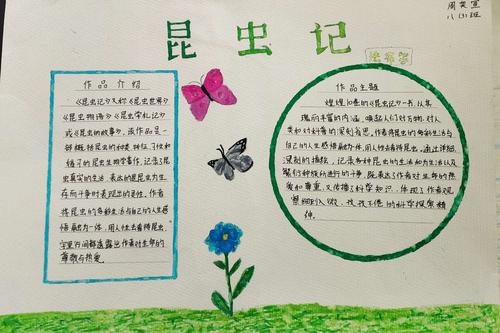 周奕宣
八(3)班
昆虫记
法布尔
作品介绍
《昆虫记》又称《昆虫世界》
《昆虫物语》《昆虫学札记》
或《昆虫的故事》,该作品是一
部概括昆虫的种类、特征、习性和
婚习的昆虫生物学著作,记录了昆
虫真实的生活,表达的是昆虫为生
存而斗争时表现出的灵性。作者
将昆虫的多彩生活与自己的人生感
悟融为一体,用人性去看待昆虫,
字里行间都透露出作者对生命的
尊敬与热爱。
作品主题
煌煌10卷的《昆虫记》一书,以其
瑰丽丰富的内涵,唤起人们对万物、对人
类和对科普的深刻省思。作者将昆虫的多彩生活与
自己的人生感悟融为一体,用人性去看待昆虫。通过详细、
深刻的描绘,记录各种昆虫的生活和为生活以及
繁衍种族所进行的斗争,既表达了作者对生命的热
爱和尊重,又传播了科学知识,体现了作者观
察细致入微、孜孜不倦的科学探索精
神。